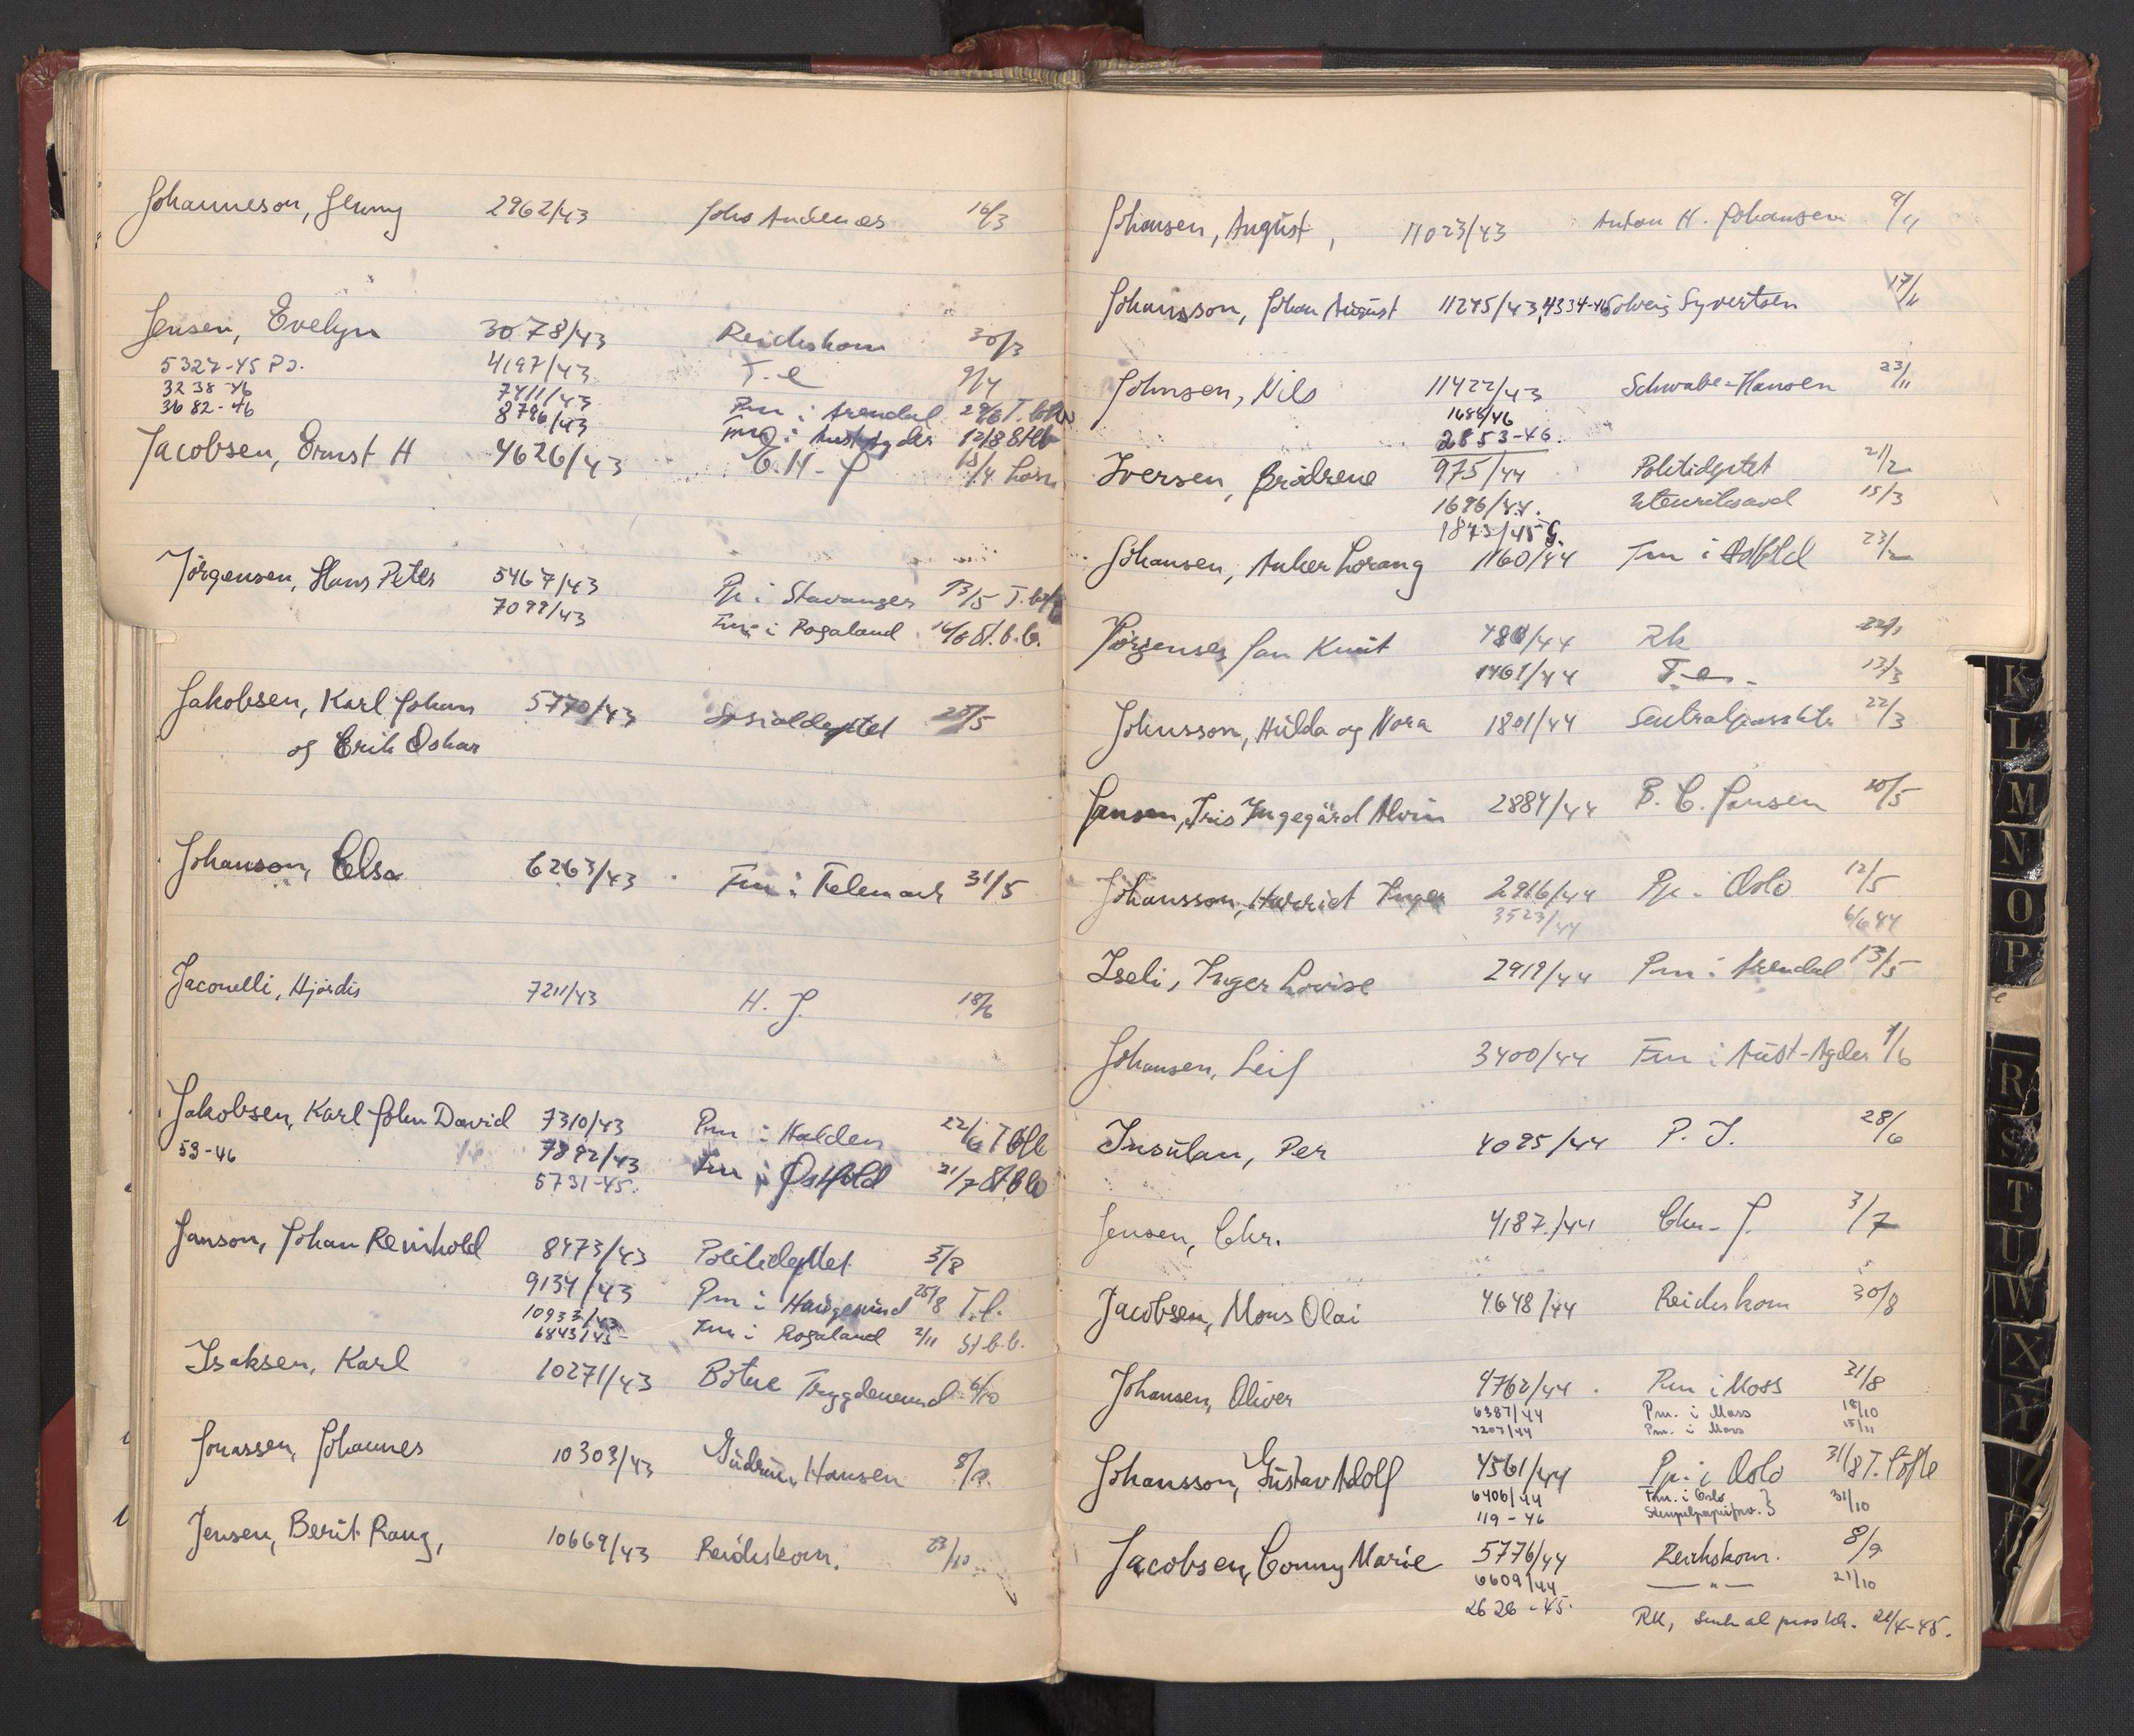 Johanneson, Jenny 2962/43 Johs Andenæs 16/3
Jensen, Evelyn 3078/43 Reichskom 30/3
5327-45 PJ. 4197/43 T.e 9/4
3238-46 7411/43 Pm i Arendal
3682-46 8796/43 Fm i Aust-Agder 12/8
Jacobsen, Ernst H 4626/43 E.H-J
Jørgensen, Hans Peter 5467/43 Pp i Stavanger 13/5
7099/43 Fm i Rogaland 16/6 St.b.b.
Jakobsen, Karl Johan 5770/43 Sosialdeptet 25/5
og Erik Oskar
Johanson, Elsa 6263/43 Fm i Telemark 31/5
Jaconelli, Hjørdis 7211/43 H. J. 18/6
Jakobsen, Karl John David 7310/43 Pm i Halden 22/6
59-46 7892/43 Fm i Østfold 21/7
5731-45.
Janson, Johan Reinhold 8473/43 Politideptet 5/8
9134/43 Pm i Haugesund 25/8 T.f.
10933/43 Fm i Rogaland 2/11 St.b.b.
6843/45-
Isaksen, Karl 10271/43 Botne Trygdenemnd 6/10
Jonassen, Johannes 10303/43 Gudrun Hansen
Jensen, Berit Rang, 10669/43 Reichskom. 23/10
Johansen, August, 11023/43 Anton H. Johansen 9/11
Johansson, Johan August 11245/43, 4334-46 Solveig Syvertsen 17/11
Johnsen, Nils 11422/43 Schwabe-Hansen 23/11
1688/46
2853-46.
Iversen, Brødrene 975/44 Politideptet 21/2
1696/44. Utenriksavd 15/3
1873/45 G.
Johansen, Anker Lorang 1160/44 Fm i Østfld 23/2
Jørgensen, Jan Knut 780/44 Rk 22/1
1461/44 T-e- 13/3
Johnsson, Hulda og Nora 1801/44 Sentralpassktr 22/3
Jansen, Iris Ingegärd Alvin 2884/44 B. C. Jansen 10/5
Johansson, Harriet Inger 2916/44 Pp. i Oslo 12/5
3523/44 6/6 44
Iseli, Inger Lovise 2919/44 Pm i Arendal 13/5
Johansen, Leif 3400/44 Fm i Aust-Agder 1/6
Insulan, Per 4095/44 P. I. 28/6
Jensen, Chr. 4187/44 Chr. J. 3/7
Jacobsen, Mons Olai 4648/44 Reichskom 30/8
Johansen, Oliver 4762/44 Pm i Moss 31/8
6387/44 Pm. i Moss 18/10
7207/44 Pm. i Moss 15/11
Johansson, Gustav Adolf 4561/44 Pp. i Oslo 31/8
6406/44 Fm. i Oslo } 31/10
119-46 Stempelpapirforv. }
Jacobsen, Conny Marie 5776/44 Reichskom. 8/9
6609/44 — " — 21/10
2626-45. RK, Sentralpassktr. 21/4-45.
K
L
M
N
O
P
R
S
T
U
W
X
Y